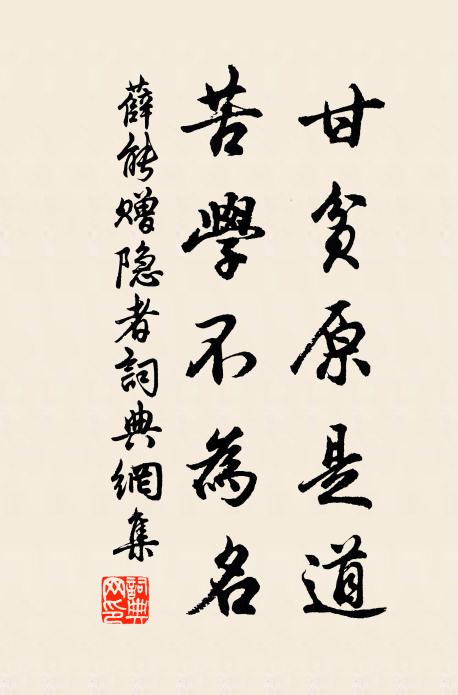 甘貧原是道
苦學不為名
薛能贈隐者詞典網集
詞典網印